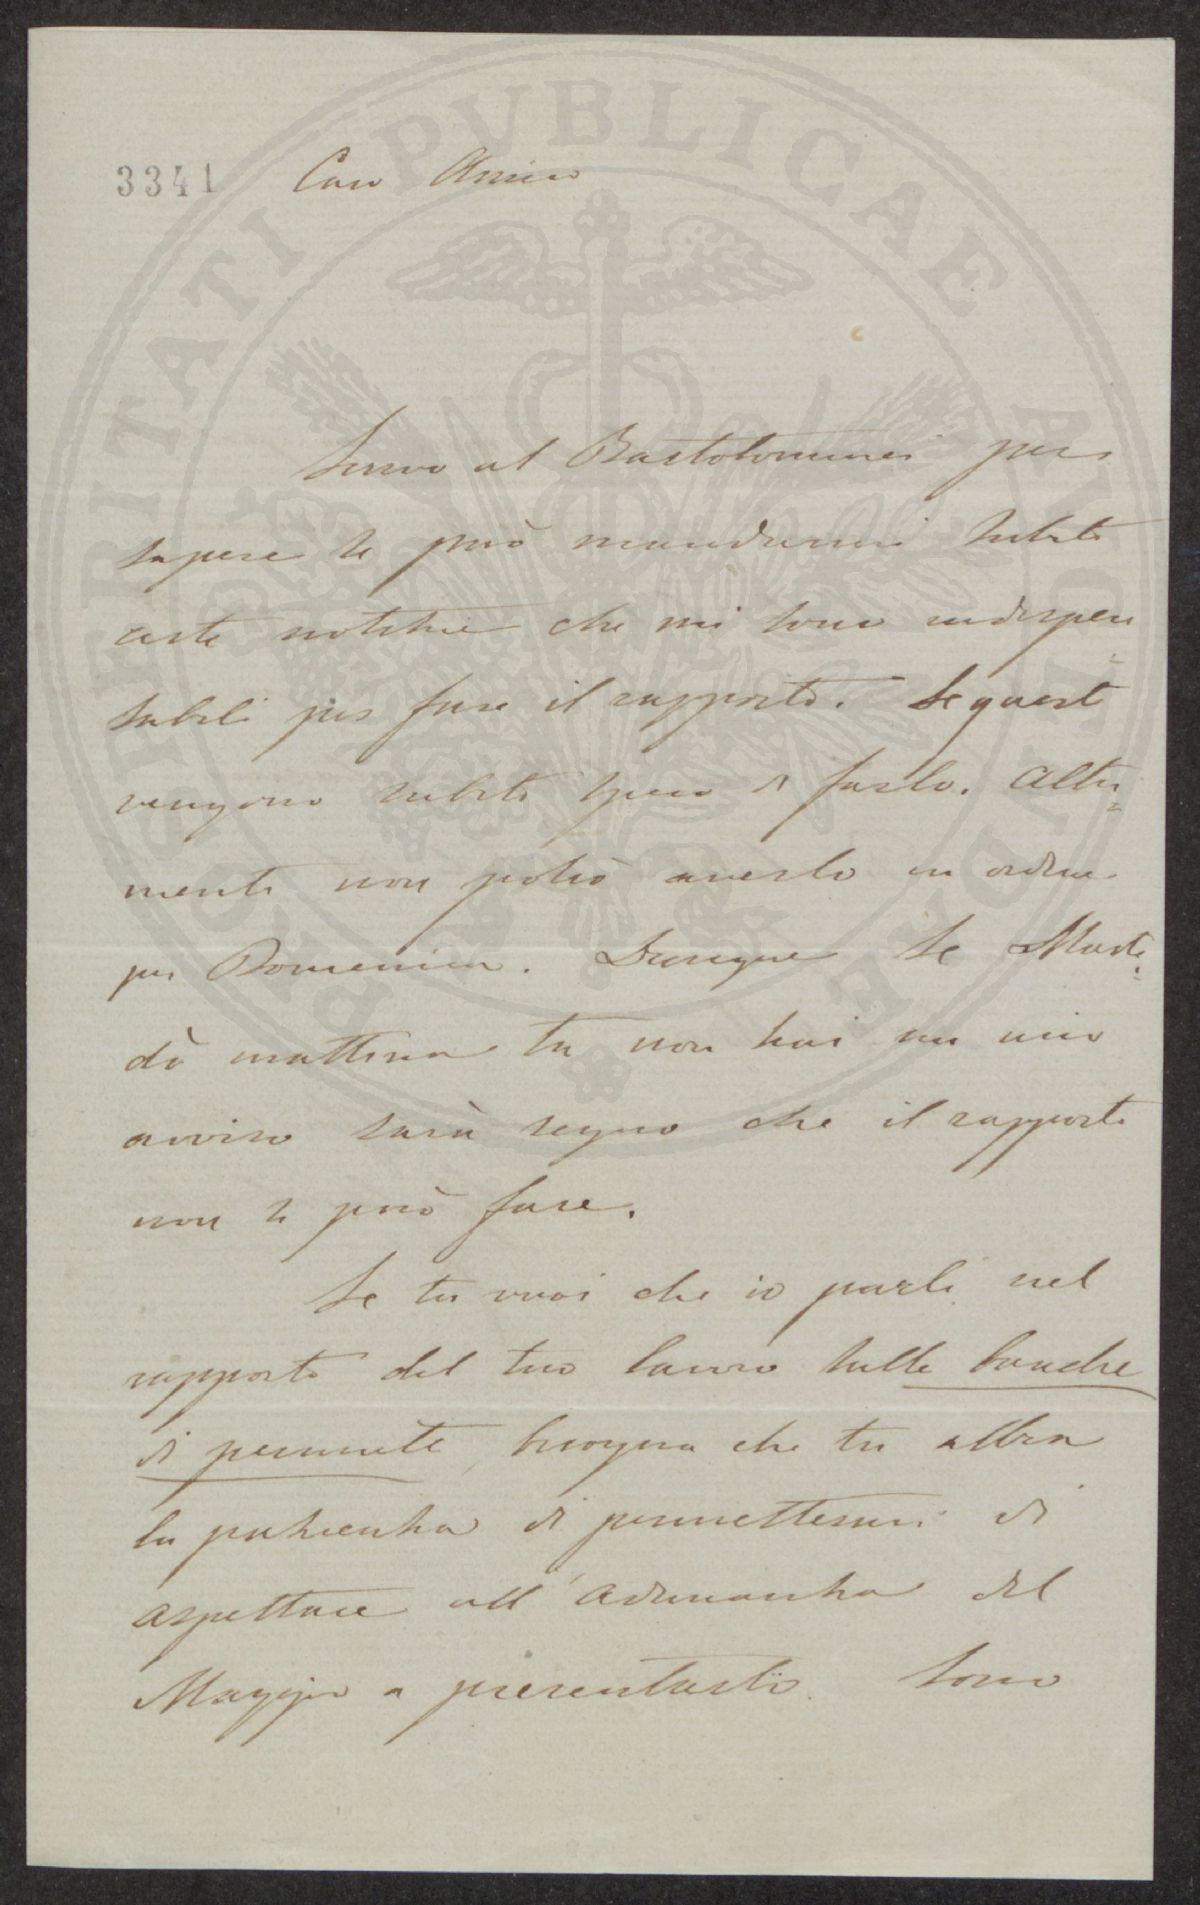 3341 Caro Amico
Scrivo al Bartolommei per
sapere se può mandarmi subito
certe notizie che mi sono indispen
sabili per fare il rapporto. Se queste
vengono subito spero di farlo. Altri=
menti non potrò averlo in ordine
per Domenica. Dunque se Marte=
dì mattina tu non hai un mio
avviso sarà segno che il rapporto
non si può fare.
Se tu vuoi che io parli nel
rapporto del tuo lavoro sulle banche
di pecunate, bisogna che tu abbia
la pazienza di permettermi di
aspettare all'Adunanza del
Maggio a presentarlo. Sono
PROSPERITATI PUBLICAE AUGENDAE